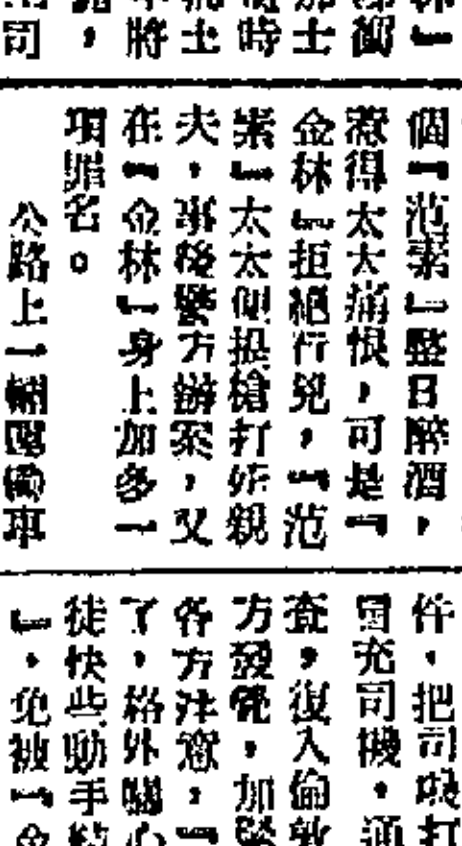 林』
衛
加士
時
土
將
，
司
個『范素』整日醉酒，
惹得太太痛恨，可是『
金林』拒絕行兇，『范
素』太太便提槍打死親
夫，事後警方辦案，又
在『金林』身上加多一
項罪名。
公路上一輛運動車
件，把司機打
冒充司機，通
查，復入倫敦
方發覺，加緊
各方注意，『
了，格外關心
徒快些動手結
』，免被『金